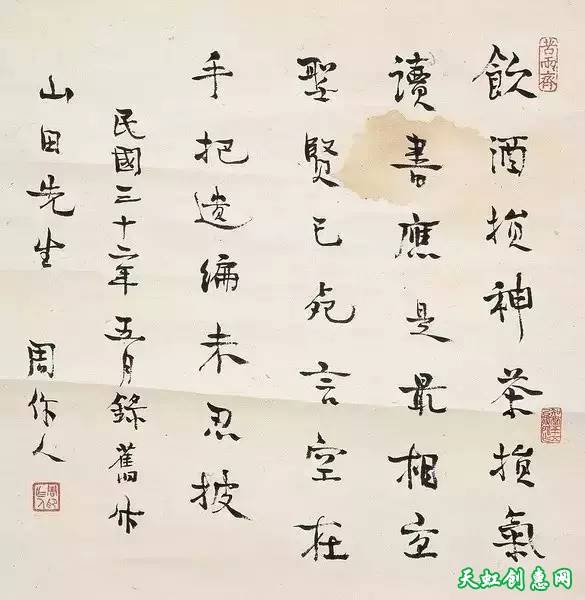 苦雨齋
飲酒損神茶損氣
讀書應是最相宜
聖賢已死言空在
手把遺編未忍披
民國三十二年五月錄舊作
山田先生
周作人
天虹创意网